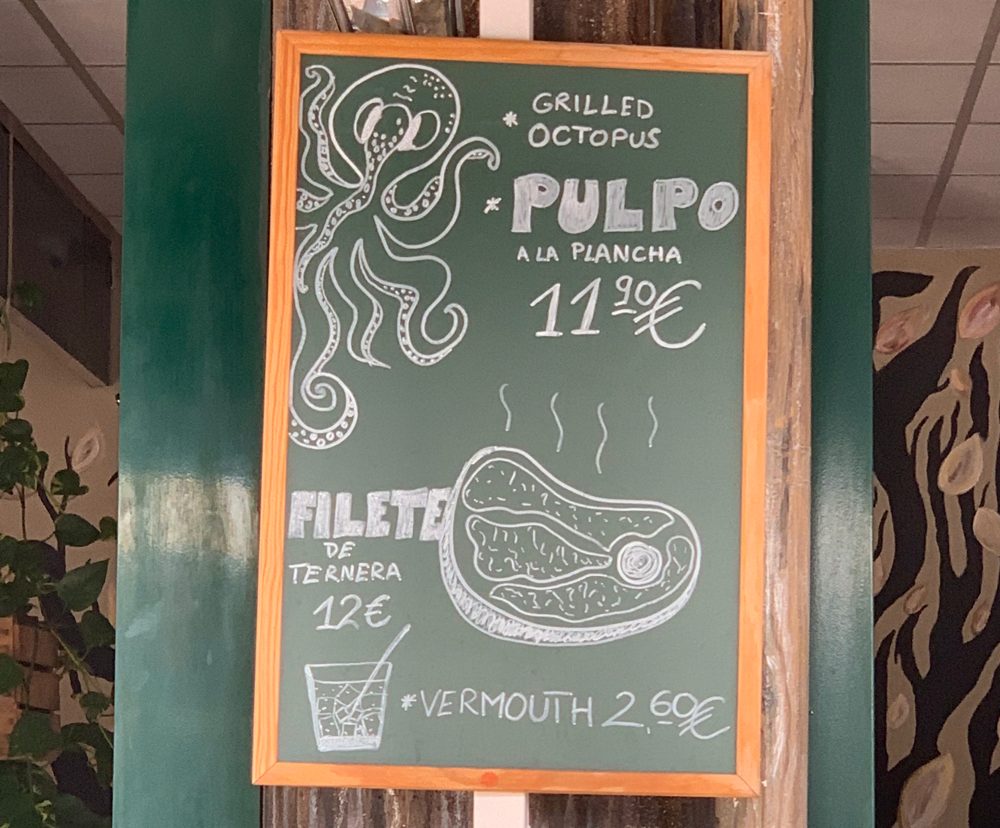 * GRILLED
OCTOPUS
* PULPO
A LA PLANCHA
11 90€
FILETE
DE
TERNERA
12€
*VERMOUTH 2,60€